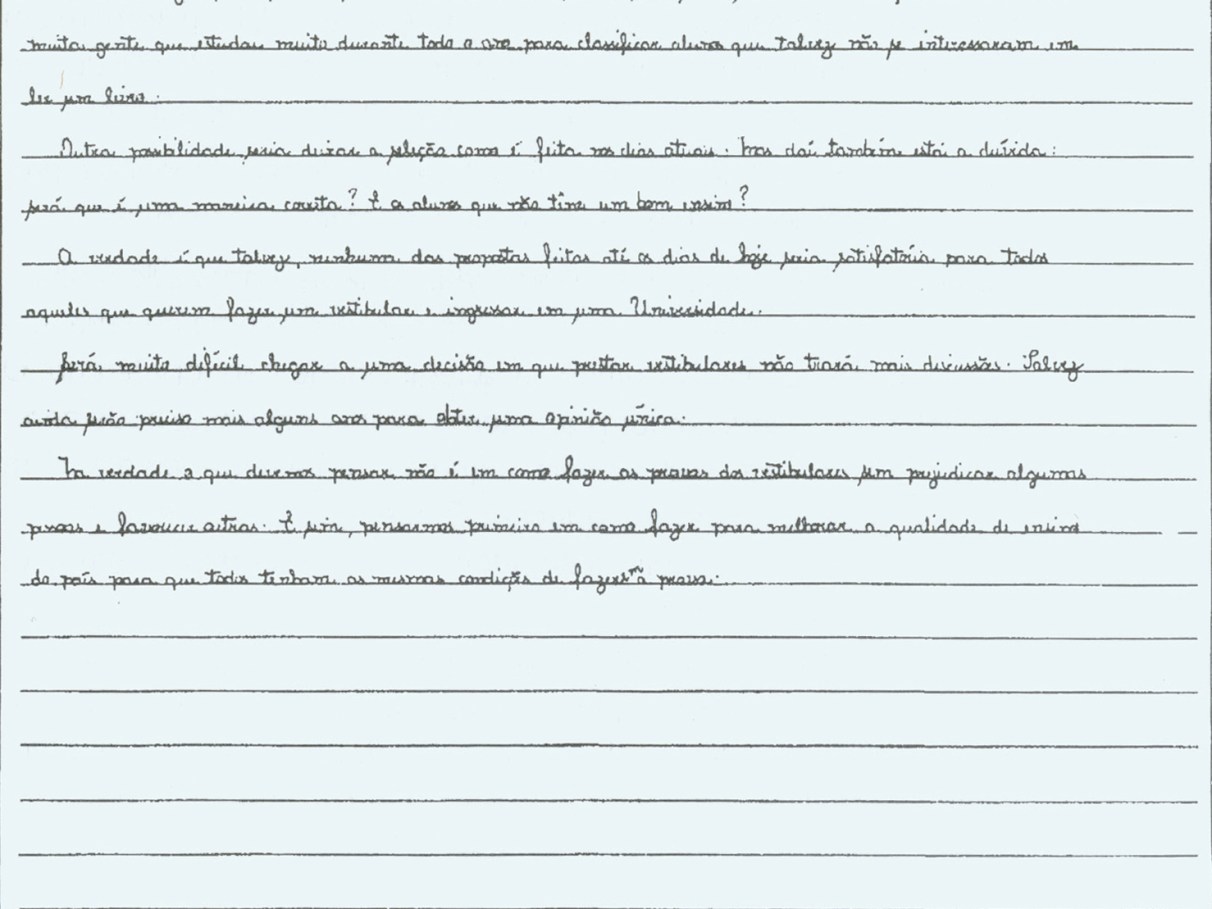 muita gente que estudou muito durante todo o ano para classificar alunos que talvez não se interessaram em
ler um livro.
Outra possibilidade seria deixar a seleção como é feita nos dias atuais. Mas daí, também está a dúvida:
será que é uma maneira correta? E os alunos que não têm um bom ensino?
A verdade é que talvez, nenhuma das propostas feitas até os dias de hoje seria satisfatória para todos
aqueles que querem fazer um vestibular e ingressar em uma Universidade.
Será muito difícil chegar a uma decisão em que prestar vestibulares não trará mais discussões. Talvez
ainda serão preciso mais alguns anos para obter uma opinião única.
Na verdade o que devemos pensar não é em como fazer as provas dos vestibulares sem prejudicar algumas
pessoas e favorecer outras. E sim, pensarmos primeiro em como fazer para melhorar a qualidade de ensino
do país para que todos tenham as mesmas condição de fazerem a prova.